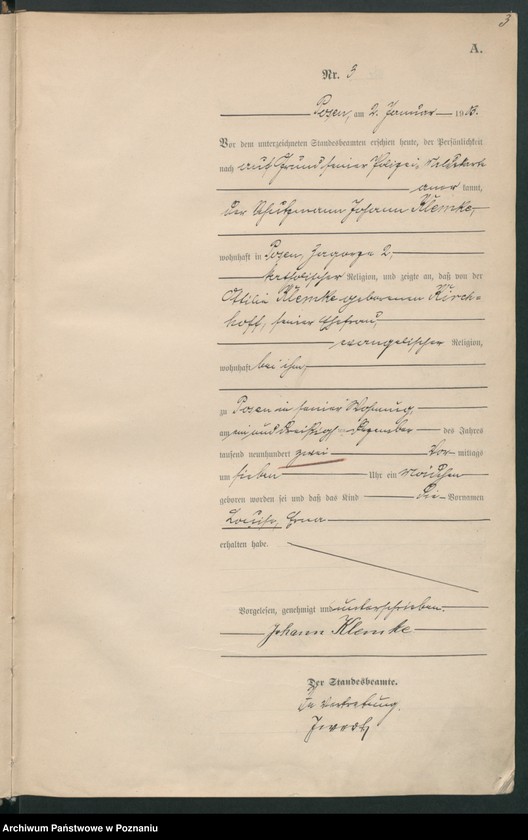 3
A.
Nr. 3
Posen, am 2. Januar 1903.
Vor dem unterzeichneten Standesbeamten erschien heute, der Persönlichkeit
nach auf Grund seiner Polizei
aner kannt,
der Schutzmann Johann Klemke,
wohnhaft in Posen, Zagorze 2,
katholischer Religion, und zeigte an, daß von der
Ottilie Klemke geborenen Kirch-
hoff, seiner Ehefrau,
evangelischer Religion,
wohnhaft bei ihm,
zu Posen in seiner Wohnung
am ein und dreißigsten Dezember des Jahres
tausend neunhundert zwei Vor mittags
um sieben Uhr ein Mädchen
geboren worden sei und daß das Kind die Vornamen
Louise, Erna
erhalten habe.
Vorgelesen, genehmigt und unterschrieben.
Johann Klemke
Der Standesbeamte.
In Vertretung.
Archiwum Państwowe w Poznaniu